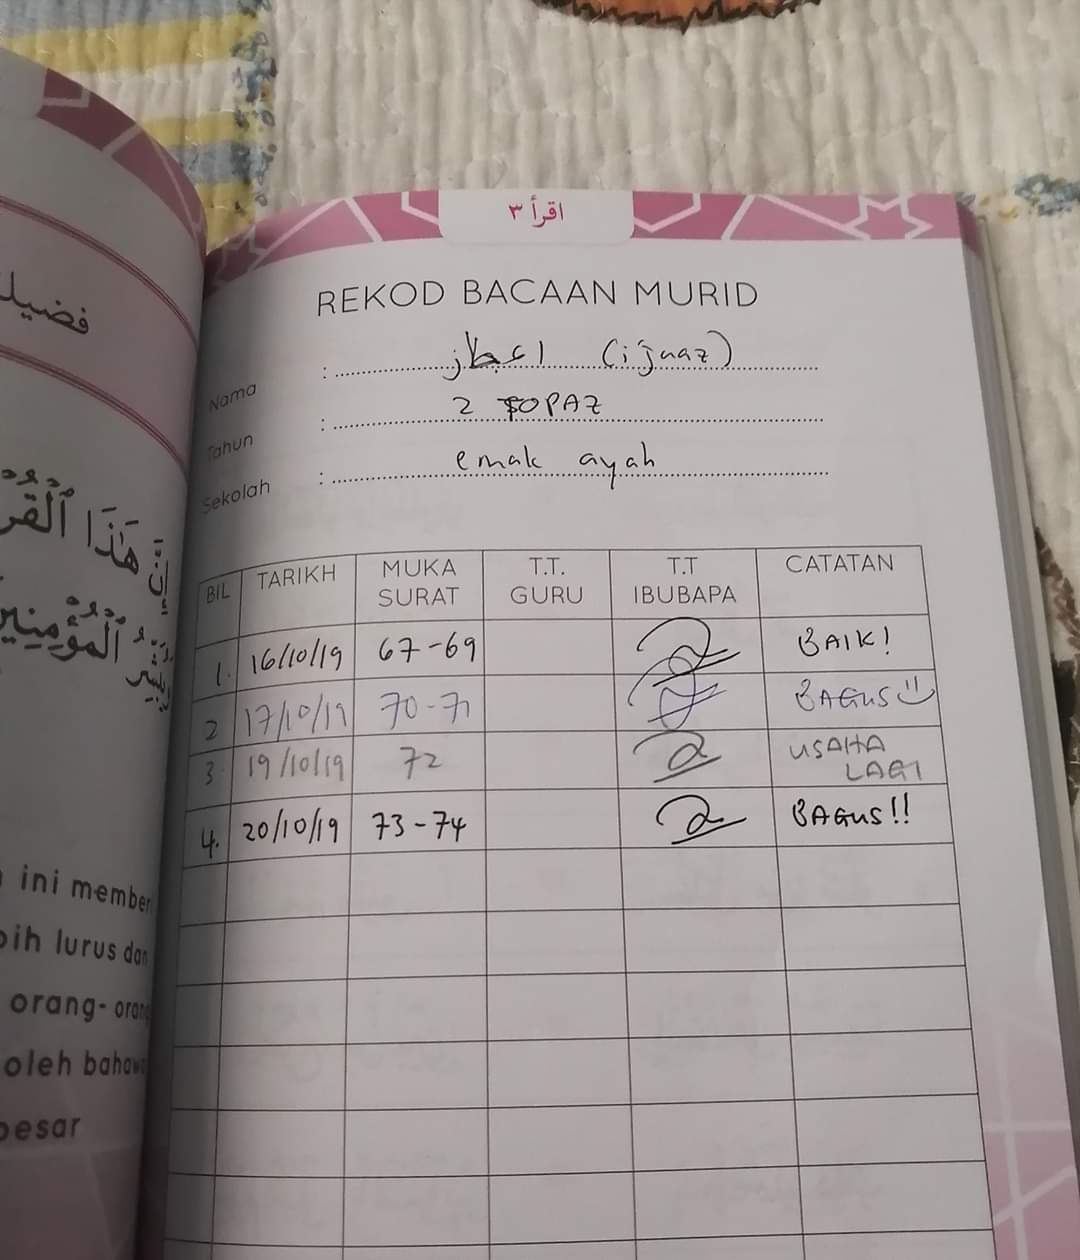 فضيل
إِنَّ هَـٰذَا ٱلْقُر
وَيُبَشِّرُ ٱلْمُؤْمِنِين
ini member
bih lurus dan
orang-orang
oleh bahawa
besar
اقرأ ٣
REKOD BACAAN MURID
Nama : اعجاز (i'jaaz)
Tahun : 2 TOPAZ
Sekolah : emak ayah
BIL TARIKH MUKA SURAT T.T. GURU T.T IBUBAPA CATATAN
1. 16/10/19 67-69 BAIK!
2 17/10/19 70-71 BAGUS
3 19/10/19 72 USAHA LAGI
4. 20/10/19 73-74 BAGUS!!